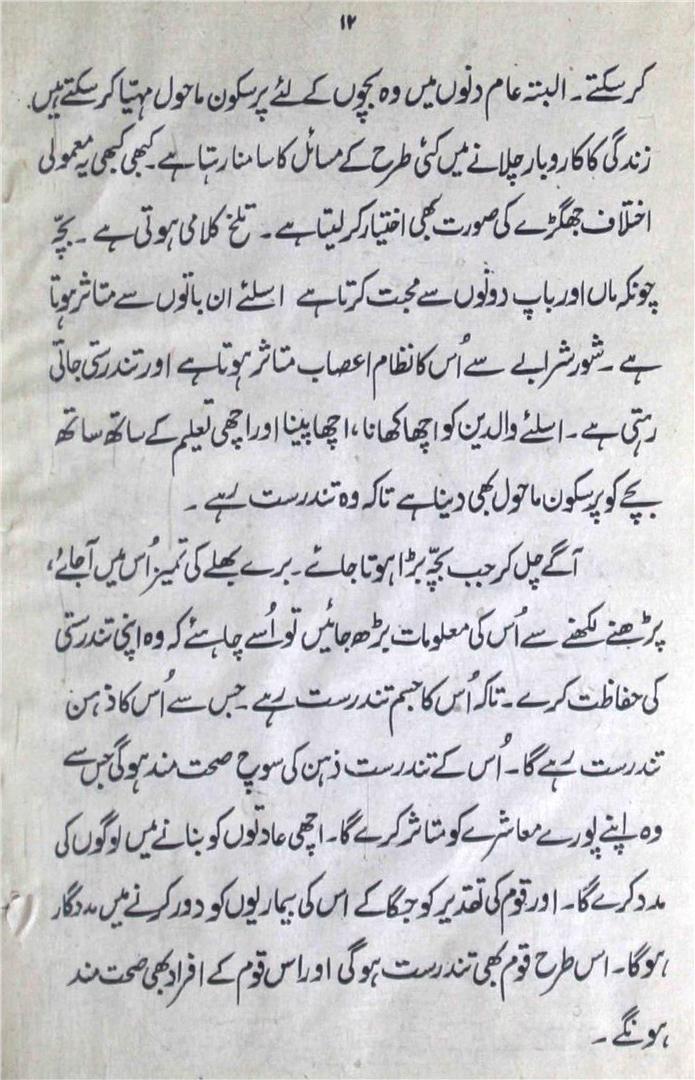 ۱۲
کر سکتے ۔ البتہ عام دنوں میں وہ بچّوں کے لئے پر سکون ماحول مہیّا کر سکتے ہیں
زندگی کا کاروبار چلانے میں کئی طرح کے مسائل کا سامنا رہتا ہے ۔ کبھی کبھی یہ معمولی
اختلاف جھگڑے کی صورت بھی اختیار کر لیتا ہے ۔ تلخ کلامی ہوتی ہے ۔ بچّہ
چونکہ ماں اور باپ دونوں سے محبت کرتا ہے اسلئے ان باتوں سے متاثر ہوتا
ہے ۔ شور شرابے سے اُس کا نظام اعصاب متاثر ہوتا ہے اور تندرستی جاتی
رہتی ہے ۔ اسلئے والدین کو اچھا کھانا، اچھا پینا اور اچھی تعلیم کے ساتھ ساتھ
بچے کو پر سکون ماحول بھی دینا ہے تاکہ وہ تندرست رہے ۔
آگے چل کر جب بچّہ بڑا ہوتا جائے ۔ برے بھلے کی تمیز اُس میں آ جائے،
پڑھنے لکھنے سے اُس کی معلومات بڑھ جائیں تو اُسے چاہئے کہ وہ اپنی تندرستی
کی حفاظت کرے ۔ تاکہ اُس کا جسم تندرست رہے ۔ جس سے اُس کا ذہن
تندرست رہے گا ۔ اُس کے تندرست ذہن کی سوچ صحت مند ہوگی جس سے
وہ اپنے پورے معاشرے کو متاثر کرے گا ۔ اچھی عادتوں کو بنانے میں لوگوں کی
مدد کرے گا ۔ اور قوم کی تقدیر کو جگا کے اس کی بیماریوں کو دور کرنے میں مددگار
ہوگا ۔ اس طرح قوم بھی تندرست ہوگی اور اس قوم کے افراد بھی صحت مند
ہونگے ۔